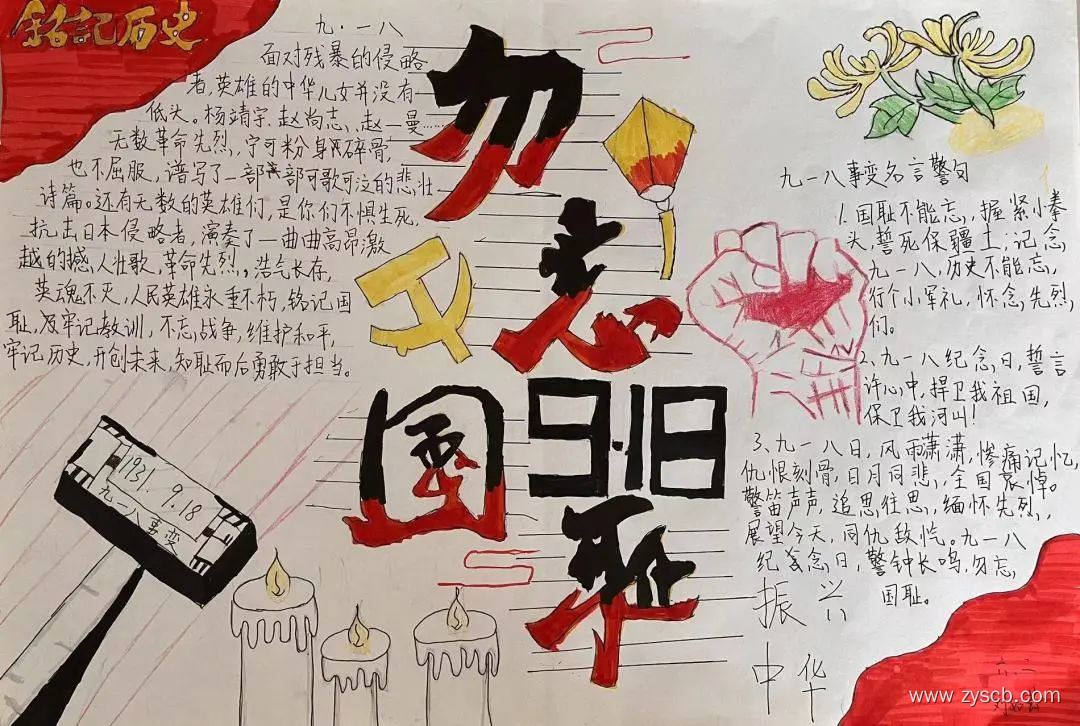 铭記历史
九·一八
面对残暴的侵略
者,英雄的中华儿女并没有
低头。杨靖宇、赵尚志、赵一曼……
无数革命先烈,宁可粉身碎骨,
也不屈服,谱写了一部部可歌可泣的悲壮
诗篇。还有无数的英雄们,是你们不惧生死,
抗击日本侵略者,演奏了一曲曲高昂激
越的撼人壮歌,革命先烈,浩气长存,
英魂不灭,人民英雄永垂不朽,铭记国
耻,及牢记教训,不忘战争,维护和平,
牢记历史,开创未来,知耻而后勇敢于担当。
勿
忘
國
9·18
耻
1931.9.18
九一八事变
九一八事变名言警句
1.国耻不能忘,握紧小拳
头,誓死保疆土,记念
九一八,历史不能忘,
行个小军礼,怀念先烈,
们。
2、九一八纪念日,誓言
许心中,捍卫我祖国,
保卫我河山!
3、九一八日,风雨潇潇,惨痛记忆,
仇恨刻骨,日月同悲,全国哀悼。
警笛声声,追思往思,缅怀先烈,
展望今天,同仇敌忾。九一八
纪念日,警钟长鸣,勿忘
国耻。
振兴
中华
六、二
www.zyscb.com